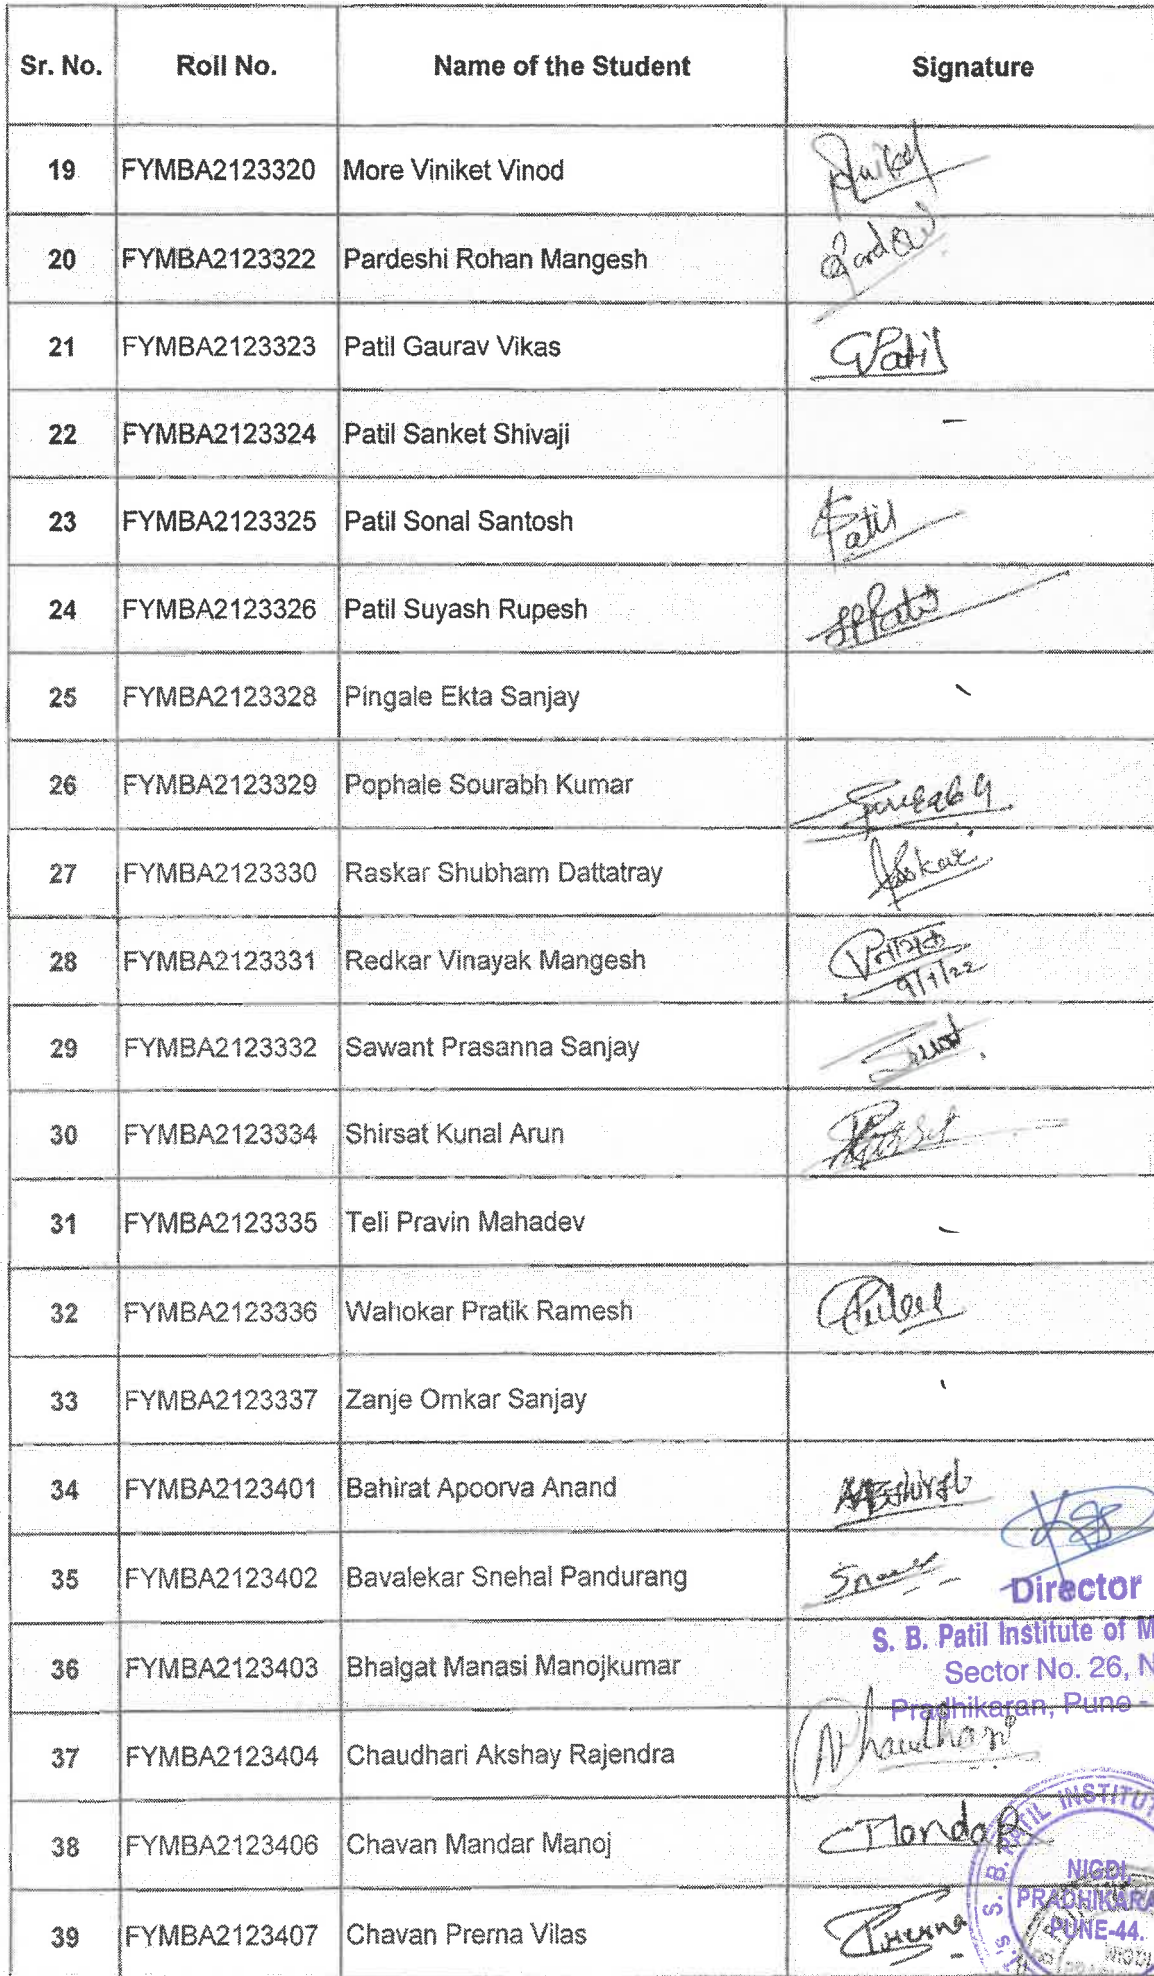 Sr. No. Roll No. Name of the Student Signature
19 FYMBA2123320 More Viniket Vinod
20 FYMBA2123322 Pardeshi Rohan Mangesh
21 FYMBA2123323 Patil Gaurav Vikas GPatil
22 FYMBA2123324 Patil Sanket Shivaji -
23 FYMBA2123325 Patil Sonal Santosh SPatil
24 FYMBA2123326 Patil Suyash Rupesh
25 FYMBA2123328 Pingale Ekta Sanjay -
26 FYMBA2123329 Pophale Sourabh Kumar
27 FYMBA2123330 Raskar Shubham Dattatray
28 FYMBA2123331 Redkar Vinayak Mangesh
9/1/22
29 FYMBA2123332 Sawant Prasanna Sanjay
30 FYMBA2123334 Shirsat Kunal Arun
31 FYMBA2123335 Teli Pravin Mahadev -
32 FYMBA2123336 Wahokar Pratik Ramesh
33 FYMBA2123337 Zanje Omkar Sanjay
34 FYMBA2123401 Bahirat Apoorva Anand
35 FYMBA2123402 Bavalekar Snehal Pandurang
Director
S. B. Patil Institute of M
36 FYMBA2123403 Bhalgat Manasi Manojkumar Sector No. 26, N
Pradhikaran, Pune -
37 FYMBA2123404 Chaudhari Akshay Rajendra
38 FYMBA2123406 Chavan Mandar Manoj
39 FYMBA2123407 Chavan Prerna Vilas Prerna
S. B. PATIL INSTITU
NIGDI,
PRADHIKARA
PUNE-44.